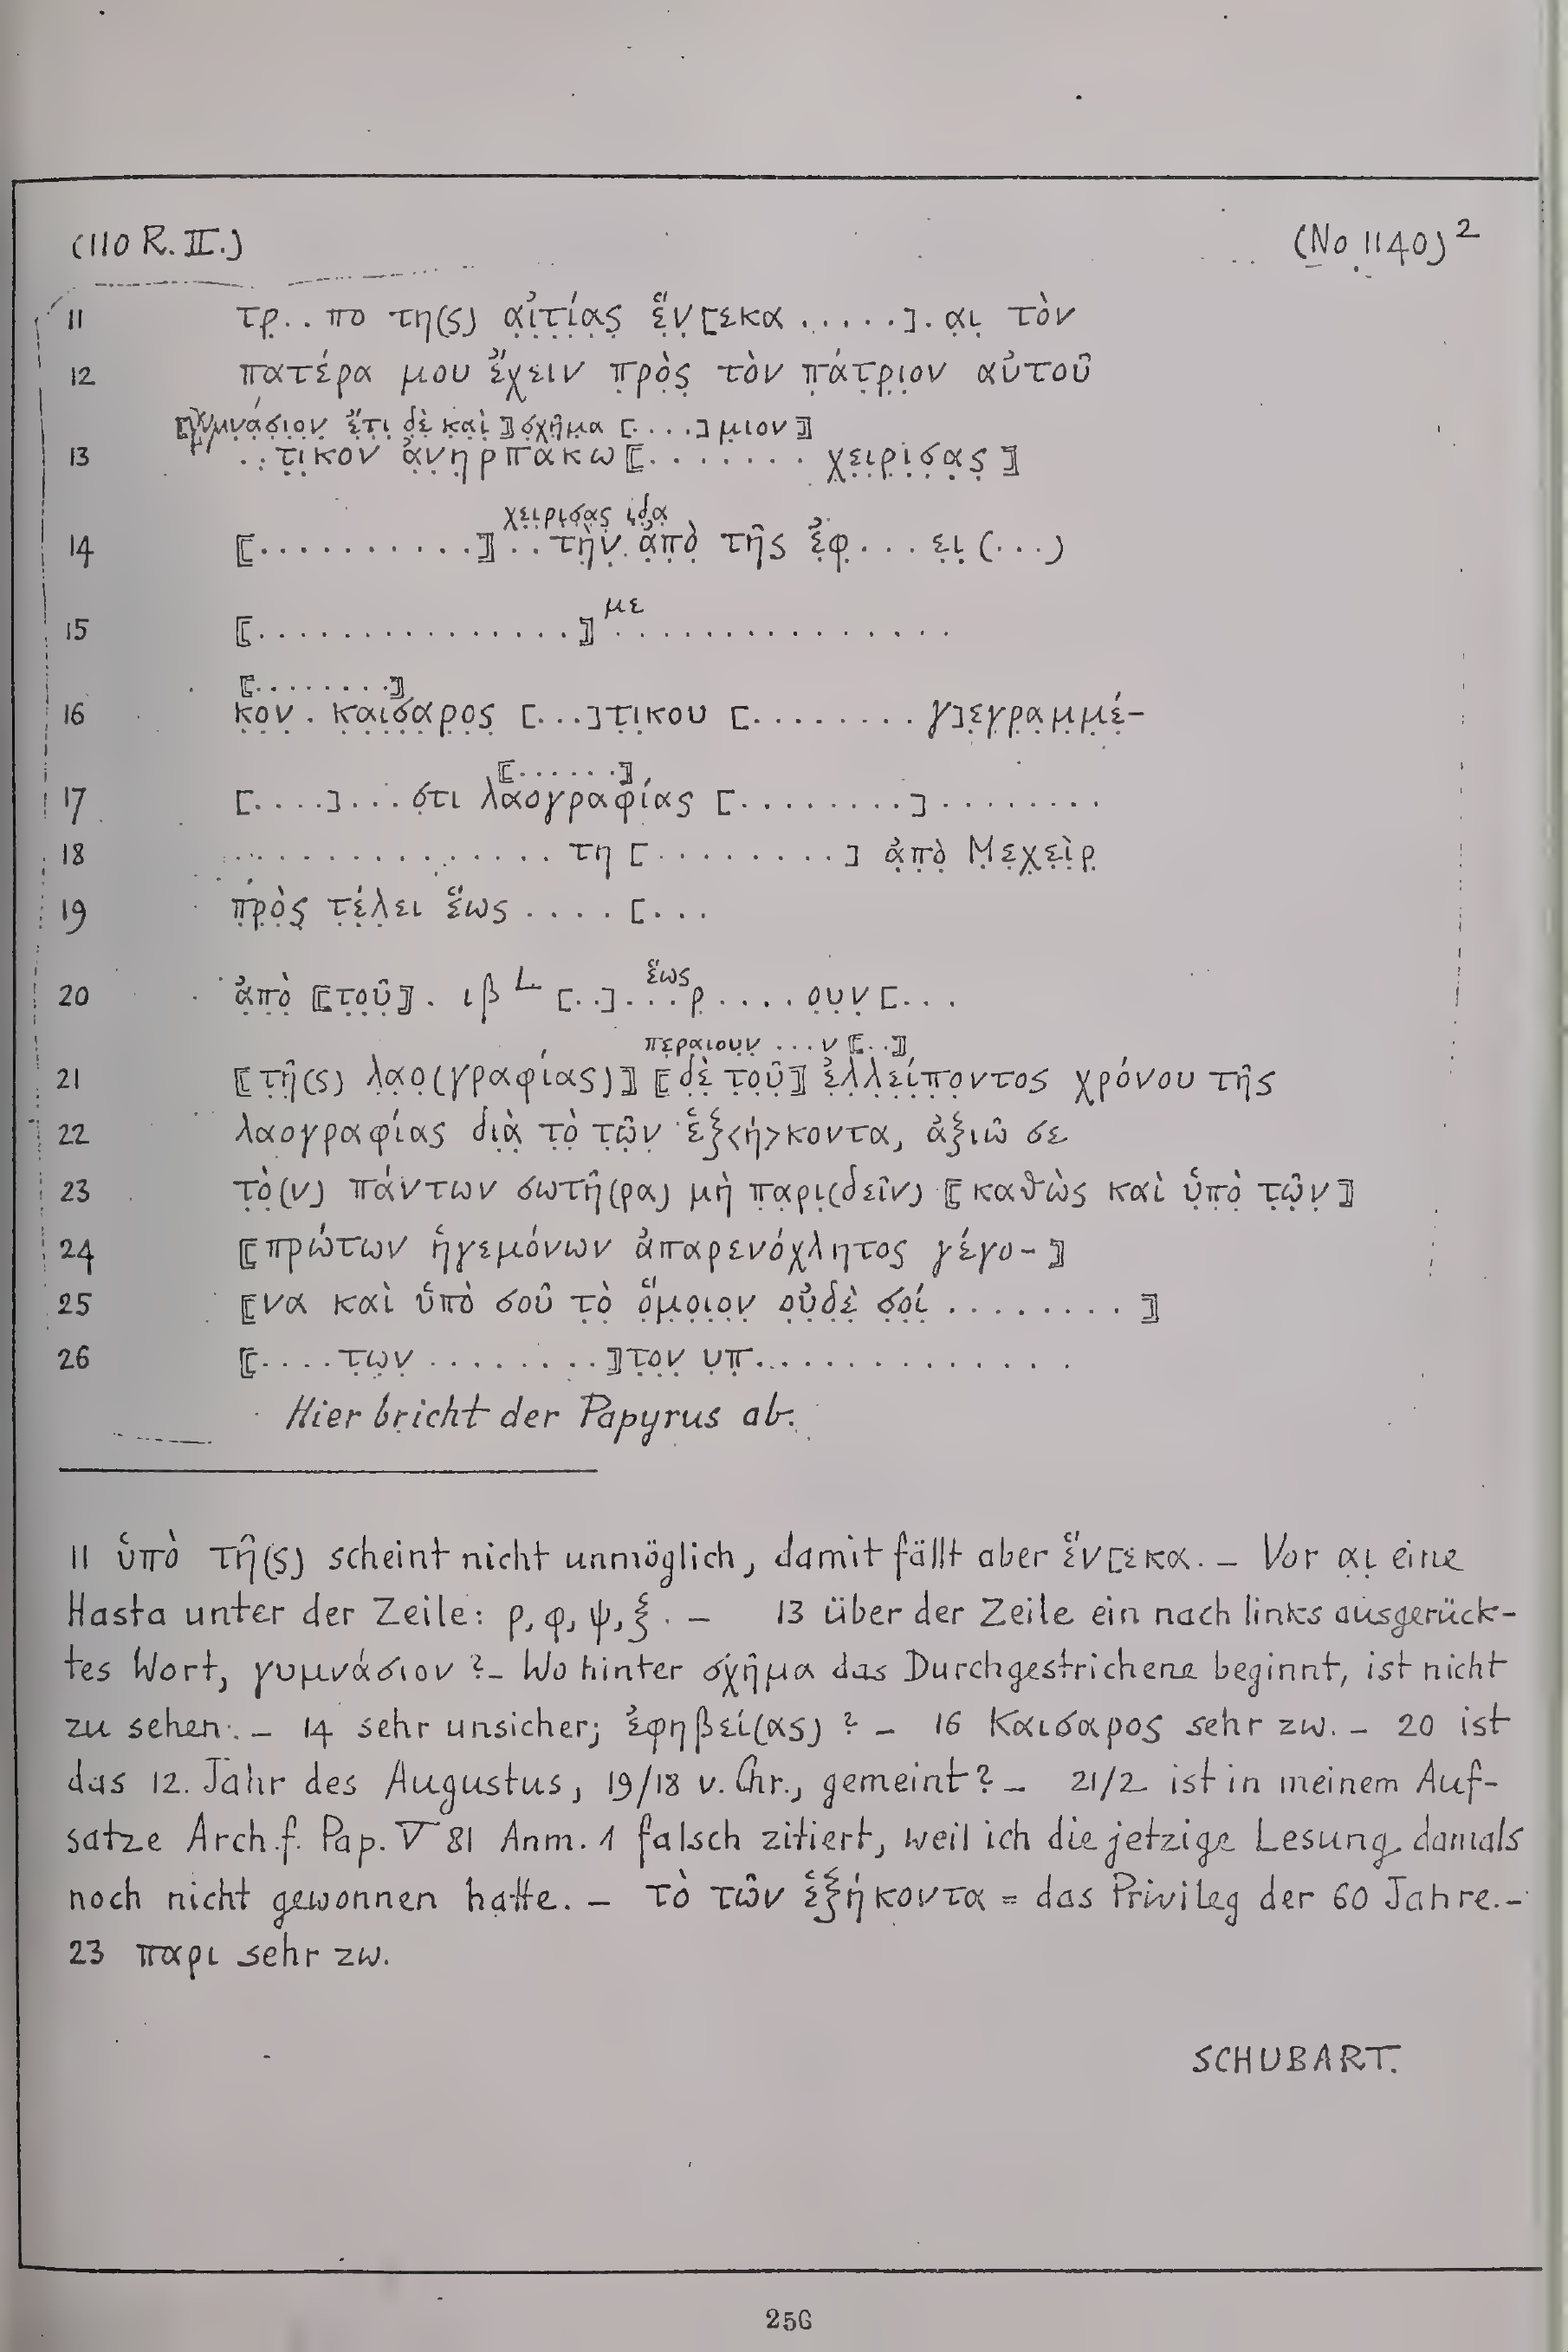 (110 R. II.) (No 1140)²
11 τρ̣. . πο τη(ς) α̣ἰ̣τ̣ί̣α̣ς̣ ἕ̣ν̣[εκα . . . . .] . α̣ι̣ τὸν
12 πατέρα μου ἔ̣χειν π̣ρ̣ὸ̣ς̣ τὸν π̣ά̣τ̣ρ̣ι̣ον αὐτοῦ
⟦γ̣υ̣μ̣ν̣ά̣σ̣ι̣ο̣ν̣ ἔ̣τ̣ι̣ δ̣ὲ̣ κ̣α̣ὶ̣⟧ σχῆ̣μ̣α [. . . .] μ̣ιον⟧
13 . . τ̣ι̣κον ἀ̣ν̣η̣ρπακω⟦. . . . . . . χ̣ε̣ι̣ρ̣ί̣σ̣α̣ς̣⟧
χ̣ε̣ι̣ρ̣ι̣σ̣α̣ς̣ ι̣δ̣α̣
14 ⟦. . . . . . . . . .⟧ . . τ̣ὴ̣ν̣ ἀ̣π̣ὸ̣ τῆς ἐ̣φ̣ . . . ε̣ι̣ (. . .)
με
15 ⟦. . . . . . . . . . . . . . .⟧ . . . . . . . . . . . . . . .
⟦. . . . . . . .⟧
16 κ̣ο̣ν̣ . κ̣α̣ι̣σ̣α̣ρ̣ο̣ς̣ [. . .]τ̣ι̣κου [. . . . . . . . γ]ε̣γ̣ρ̣α̣μ̣μ̣έ̣-
⟦. . . . . .⟧
17 [. . . .] . . . ο̣τι λαογραφίας [. . . . . . . . .] . . . . . . . .
18 . . . . . . . . . . . . . . . τη [. . . . . . . . .] ἀ̣π̣ὸ̣ Μ̣ε̣χ̣ε̣ὶ̣ρ̣
19 π̣ρ̣ὸ̣ς̣ τ̣έ̣λ̣ει ἕως . . . . [. . .
ἕως
20 ἀ̣π̣ὸ̣ ⟦τ̣ο̣ῦ̣⟧ . ιβ L [. .] . . . . ρ . . . . ο̣υ̣ν̣ [. . .
π̣ε̣ρ̣α̣ι̣ο̣υ̣ν̣ . . . ν ⟦. .⟧
21 ⟦τ̣ῆ̣(ς) λ̣α̣ο̣(γραφίας)⟧ ⟦δ̣ὲ̣ τ̣ο̣ῦ̣⟧ ἐ̣λ̣λ̣ε̣ί̣π̣ο̣ντος χρόνου τῆς
22 λαογραφίας δι̣ὰ̣ τ̣ὸ̣ τ̣ῶ̣ν̣ ἑξ<ή>κοντα, ἀξιῶ σε
23 τ̣ὸ̣(ν) πάντων σωτῆ(ρα) μὴ π̣α̣ρ̣ι̣(δεῖν) ⟦καθὼς καὶ ὑ̣π̣ὸ̣ τ̣ῶ̣ν̣⟧
24 ⟦πρώτων ἡγεμόνων ἀπαρενόχλητος γέγο-⟧
25 ⟦να καὶ ὑπὸ σοῦ τ̣ὸ̣ ὅ̣μ̣ο̣ι̣ο̣ν̣ ο̣ὐ̣δ̣ὲ̣ σ̣ο̣ί̣ . . . . . . . .⟧
26 ⟦. . . . τ̣ω̣ν̣ . . . . . . . . .⟧τ̣ο̣ν̣ υ̣π̣. . . . . . . . . . . . . .
Hier bricht der Papyrus ab.
11 ὑπὸ τῆ(ς) scheint nicht unmöglich, damit fällt aber ἕν[εκα. – Vor α̣ι̣ eine
Hasta unter der Zeile: ρ, φ, ψ, ξ. – 13 über der Zeile ein nach links ausgerück-
tes Wort, γυμνάσιον? – Wo hinter σχῆμα das Durchgestrichene beginnt, ist nicht
zu sehen. – 14 sehr unsicher; ἐφηβεί(ας)? – 16 Καισαρος sehr zw. – 20 ist
das 12. Jahr des Augustus, 19/18 v. Chr., gemeint? – 21/2 ist in meinem Auf-
satze Arch. f. Pap. V 81 Anm. 1 falsch zitiert, weil ich die jetzige Lesung damals
noch nicht gewonnen hatte. – τὸ τῶν ἑξήκοντα = das Privileg der 60 Jahre. –
23 παρι sehr zw.
SCHUBART.
256